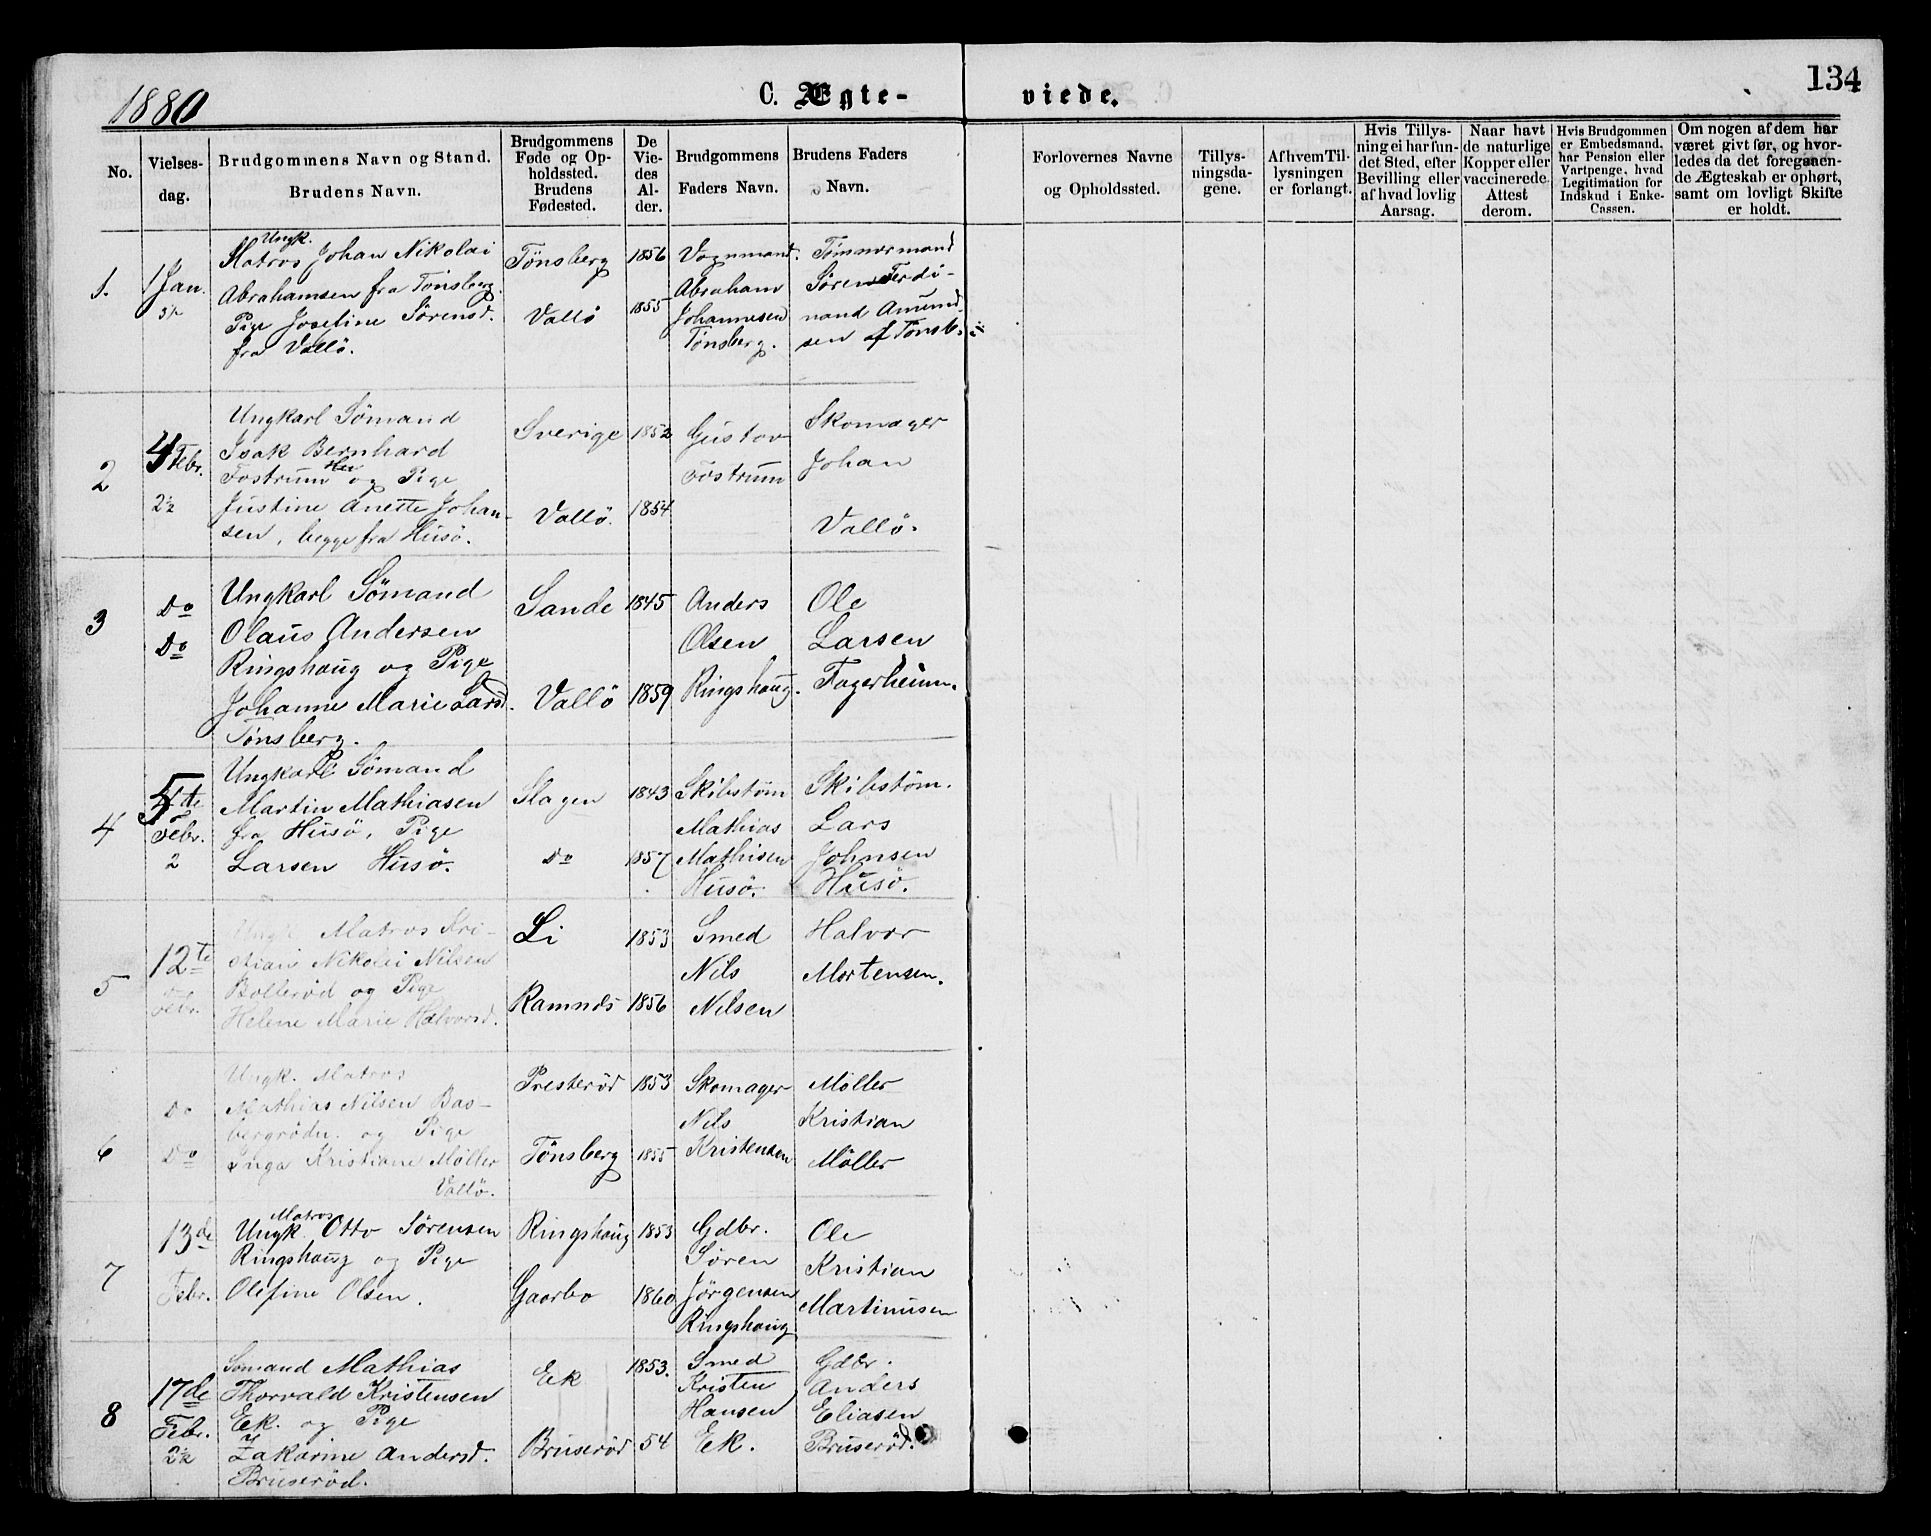 1880
C. Ægte-
viede.
134
No.
Vielses-
dag.
Brudgommens Navn og Stand.
Brudens Navn.
Brudgommens
Føde og Op-
holdssted.
Brudens
Fødested.
De
Vie-
des
Al-
der.
Brudgommens
Faders Navn.
Brudens Faders
Navn.
Forlovernes Navne
og Opholdssted.
Tillys-
ningsda-
gene.
Af hvem Til-
lysningen
er forlangt.
Hvis Tillys-
ning ei har fun-
det Sted, efter
Bevilling eller
af hvad lovlig
Aarsag.
Naar havt
de naturlige
Kopper eller
vaccinerede.
Attest
derom.
Hvis Brudgommen
er Embedsmand,
har Pension eller
Vartpenge, hvad
Legitimation for
Indskud i Enke-
Cassen.
Om nogen af dem har
været givt før, og hvor-
ledes da det foregaaen-
de Ægteskab er ophørt,
samt om lovligt Skifte
er holdt.
1.
1 Jan.
Ungk.
Matros Johan Nikolai
Abrahamsen fra Tönsberg.
Pige Josefine Sörensd.
fra Vallö.
Tönsberg
Vallö
1856
1855
Vognmand.
Abraham
Johannesen
Tönsberg.
Tömmermand
Sören Ferdi-
nand Amund-
sen af Tönsb.
2
4 Febr.
2½
Ungkarl Sömand
Isak Bernhard
Fostrum og Pige
Justine Anette Johan-
sen, begge fra Husö.
Sverige
Vallö.
1852
1854
Gustav
Fostrum
Skomager
Johan
Vallö.
3
Do
Do
Ungkarl Sömand
Olaus Andersen
Ringshaug og Pige
Johanne Marie Larsd.
Tönsberg.
Sande
Vallö
1845
1859
Anders
Olsen
Ringshaug.
Ole
Larsen
Fagerheim.
4
5te
Febr.
2
Ungkarl Sömand
Martin Mathiasen
fra Husö, Pige
Larsen Husö.
Slagen
Do
1843
1857
Skibstöm
Mathias
Mathisen
Husö.
Skibstöm.
Lars
Johnsen
Husö.
5
12te
Febr.
Ungk. Matros Kri-
stian Nikolai Nilsen
Bollerød og Pige
Helene Marie Halvorsd.
Li
Ramnæs
1853
1856
Smed
Nils
Nilsen
Halvor
Mortensen.
6
Do
Do
Ungk. Matros
Mathias Nilsen Bas-
bergrödn. og Pige
Inga Kristiane Möller
Vallö.
Presterød
Tönsberg
1853
1855
Skomager
Nils
Kristensen
Möller
Kristian
Möller
7
13de
Febr.
Matros
Ungk. Otto Sörensen
Ringshaug og Pige
Olefine Olsen.
Ringshaug
Gaarbo
1853
1860
Gdbr.
Sören
Jörgensen
Ringshaug
Ole
Kristian
Martinusen
8
17de
Febr.
2½
Sömand Mathias
Thorvald Kristensen
Ek. og Pige
Zakarine Andersd.
Bruserød.
Ek
Bruserød
1853.
54
Smed
Kristen
Hansen
Ek.
Gdbr.
Anders
Eliasen
Bruserød.